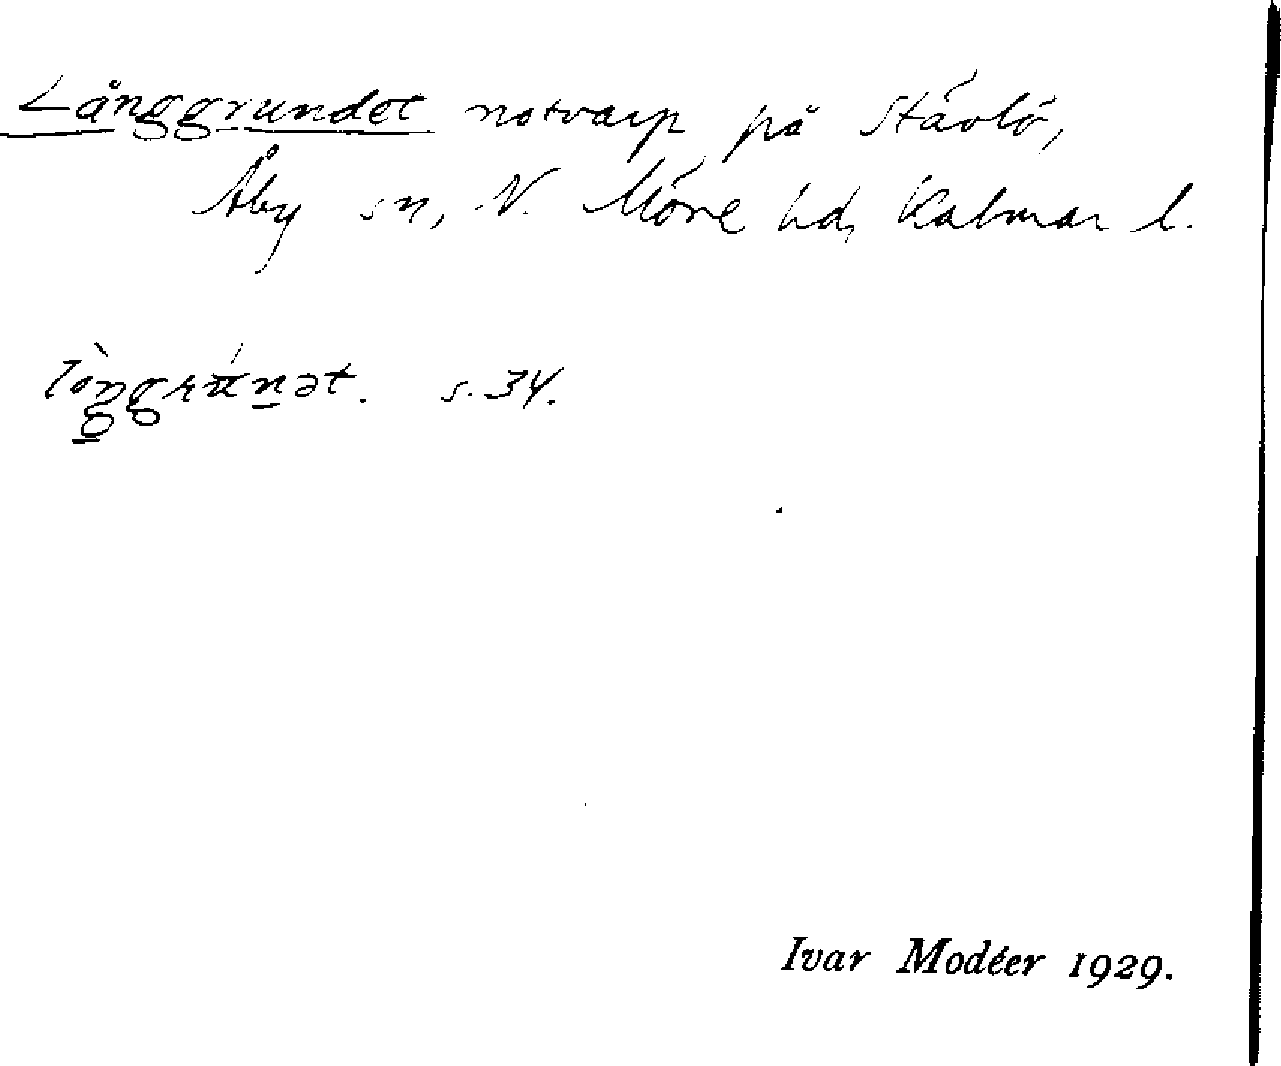 Långgrundet notvarp på Stävlö,
Åby sn, N. Möre hd, Kalmar l.
s. 34.
Ivar Modéer 1929.